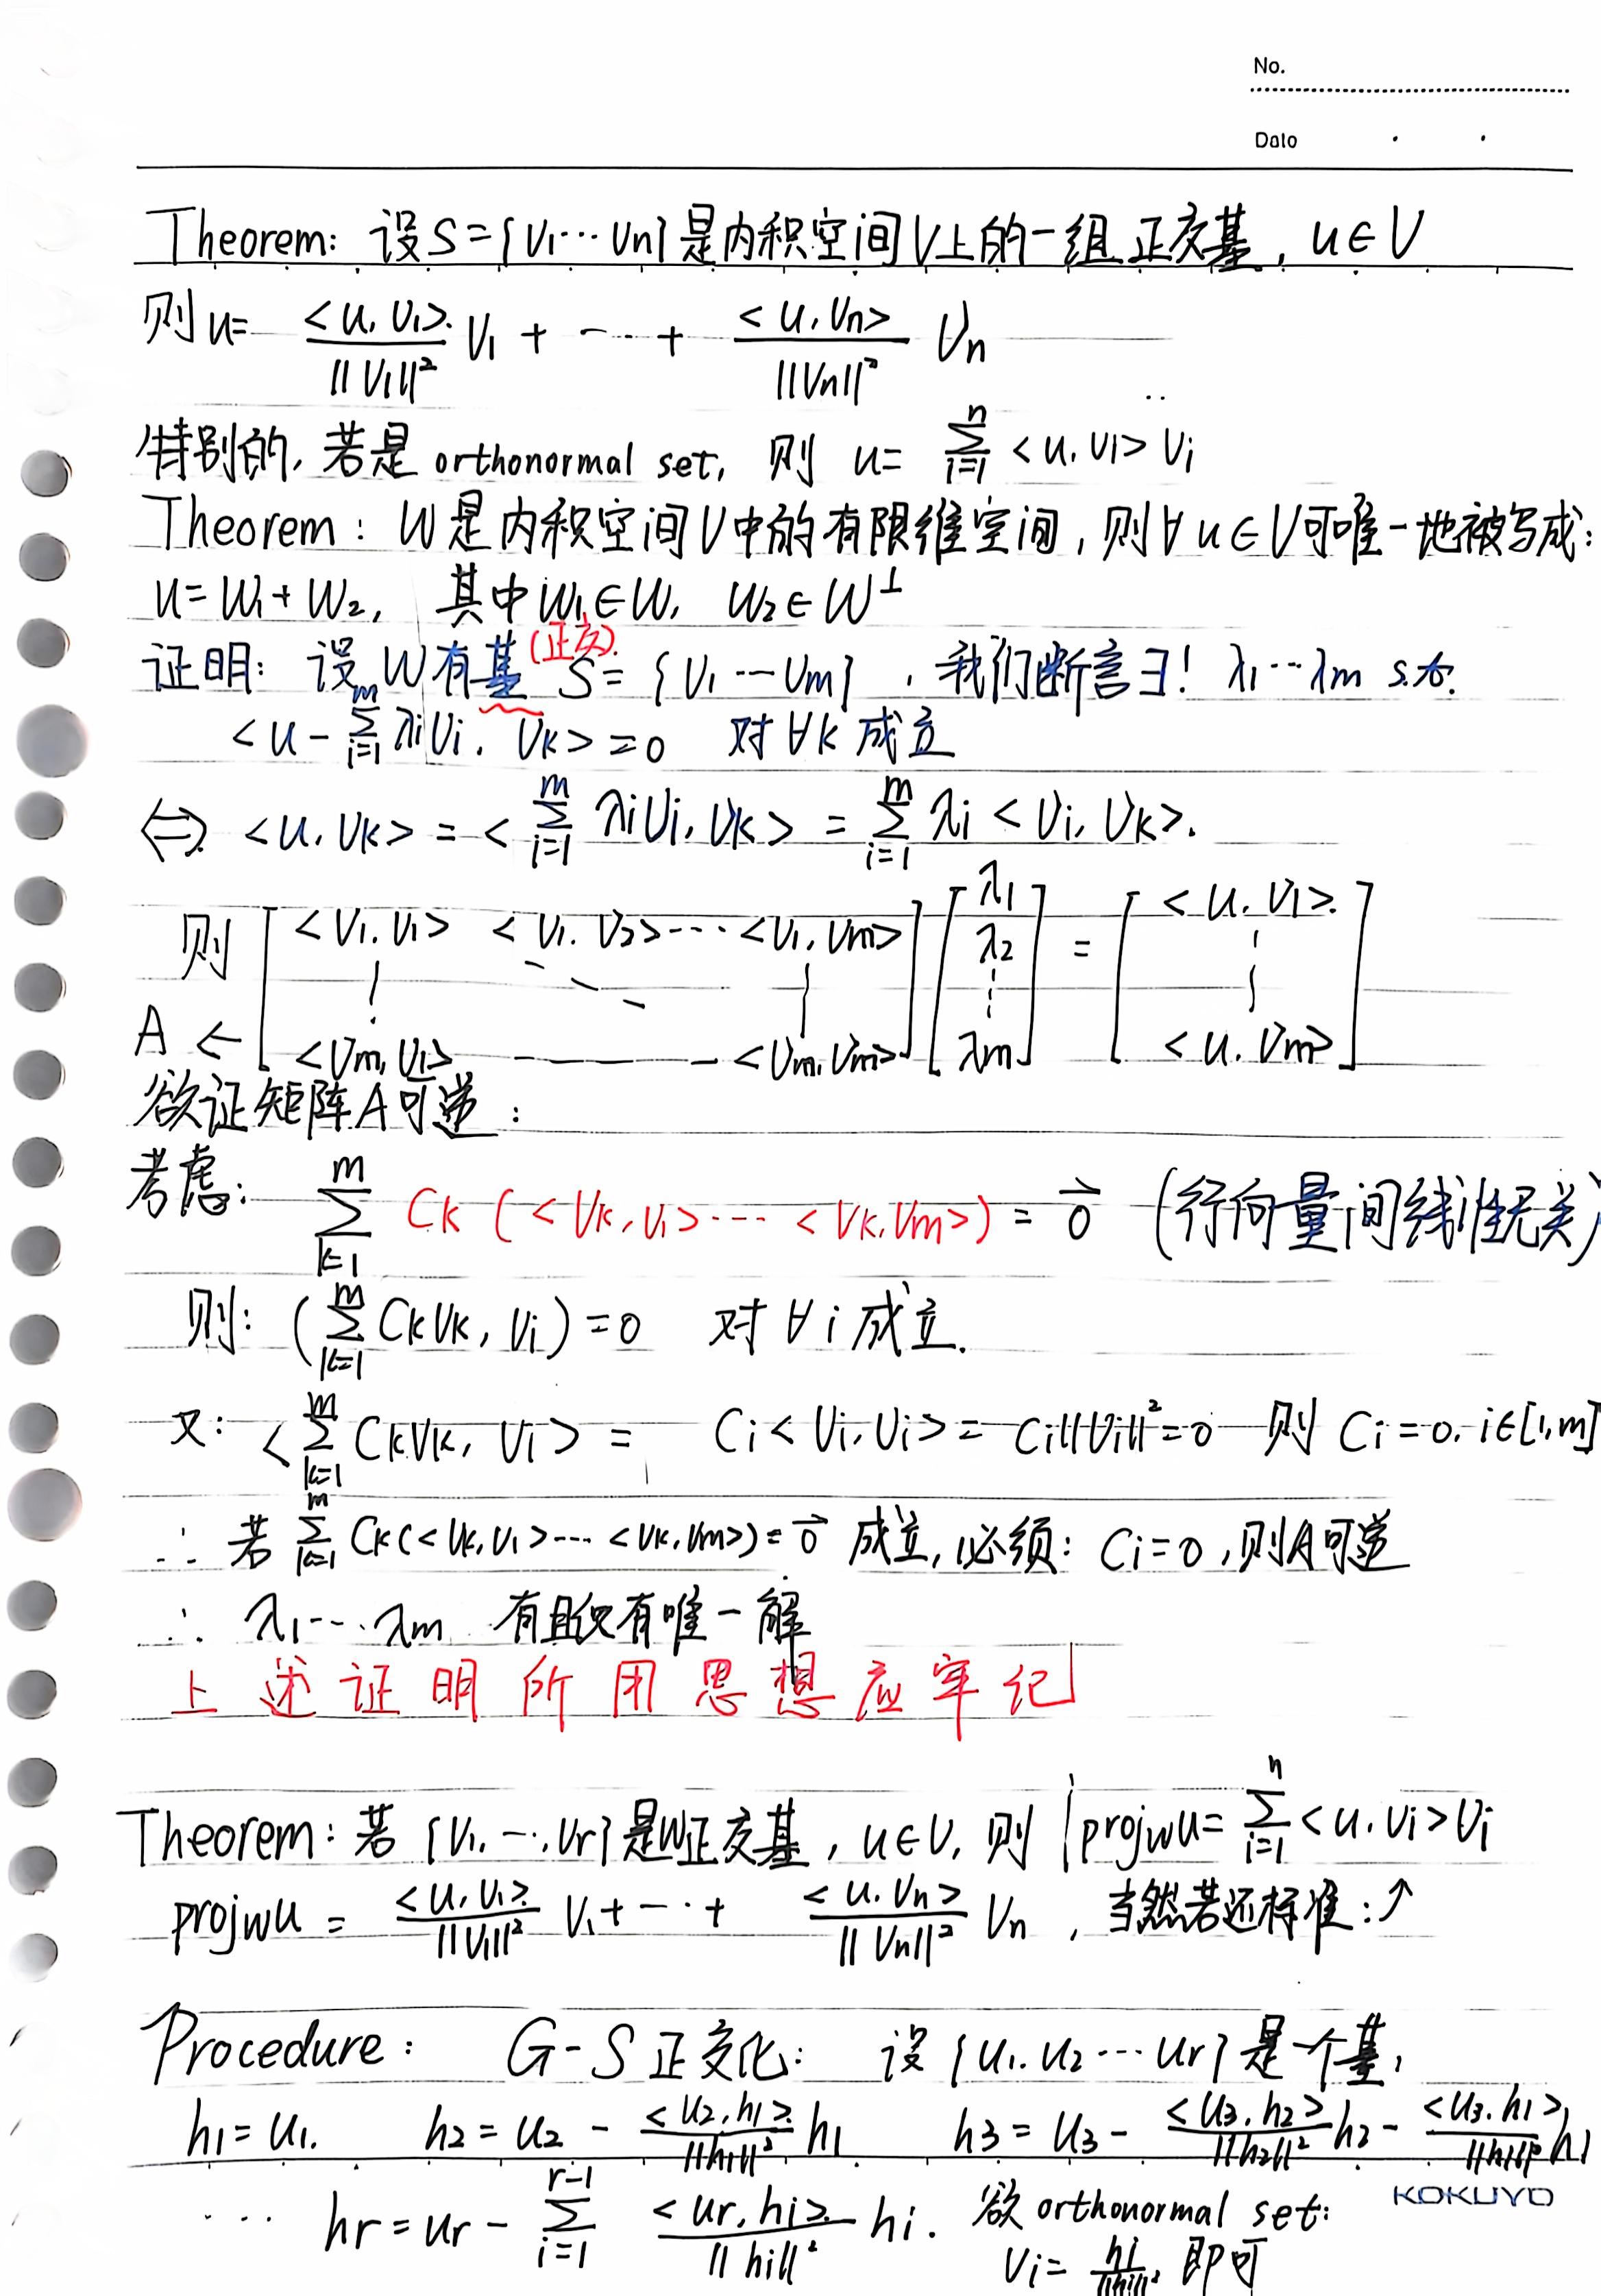 No.
Date
Theorem: 设S={v₁⋯vₙ}是内积空间V上的一组正交基, u∈V
则 u= <u,v₁>/||v₁||² v₁ + ⋯ + <u,vₙ>/||vₙ||² vₙ
特别的, 若是 orthonormal set, 则 u= Σᵢ₌₁ⁿ <u,vᵢ> vᵢ
Theorem: W是内积空间V中的有限维空间, 则∀u∈V可唯一地被写成:
u=w₁+w₂, 其中w₁∈W, w₂∈W^⊥
证明: 设W有基(正交) S={v₁⋯vₘ}, 我们断言∃! λ₁⋯λₘ s.t.
<u-Σᵢ₌₁ᵐ λᵢvᵢ, vₖ>=0 对∀k成立
⇔ <u,vₖ> = <Σᵢ₌₁ᵐ λᵢvᵢ, vₖ> = Σᵢ₌₁ᵐ λᵢ<vᵢ,vₖ>.
则 [<v₁,v₁> <v₁,v₂>⋯<v₁,vₘ> ⋮ ⋱ ⋮ <vₘ,v₁> ⋯ <vₘ,vₘ>] [λ₁ λ₂ ⋮ λₘ] = [<u,v₁> ⋮ <u,vₘ>]
A ←
欲证矩阵A可逆:
考虑: Σₖ₌₁ᵐ Cₖ(<vₖ,v₁>⋯<vₖ,vₘ>) = 0⃗ (行向量间线性无关)
则: (Σₖ₌₁ᵐ Cₖvₖ, vᵢ)=0 对∀i成立.
又: <Σₖ₌₁ᵐ Cₖvₖ, vᵢ> = Cᵢ<vᵢ,vᵢ>=Cᵢ||vᵢ||²=0 则 Cᵢ=0, i∈[1,m]
∴ 若 Σₖ₌₁ᵐ Cₖ(<vₖ,v₁>⋯<vₖ,vₘ>)=0⃗ 成立, 必须: Cᵢ=0, 则A可逆
∴ λ₁⋯λₘ 有且仅有唯一解
上述证明所用思想应牢记
Theorem: 若{v₁,⋯,vᵣ}是W正交基, u∈V, 则 | proj_W u= Σᵢ₌₁ⁿ <u,vᵢ>vᵢ
proj_W u = <u,v₁>/||v₁||² v₁+⋯+ <u,vₙ>/||vₙ||² vₙ, 当然若还标准:↗
Procedure: G-S正交化: 设{u₁,u₂⋯uᵣ}是一个基,
h₁=u₁. h₂=u₂ - <u₂,h₁>/||h₁||² h₁ h₃=u₃- <u₃,h₂>/||h₂||² h₂- <u₃,h₁>/||h₁||² h₁
⋯ hᵣ=uᵣ- Σᵢ₌₁ʳ⁻¹ <uᵣ,hᵢ>/||hᵢ||² hᵢ. 欲orthonormal set:
vᵢ= hᵢ/||hᵢ||, 即可
KOKUYO